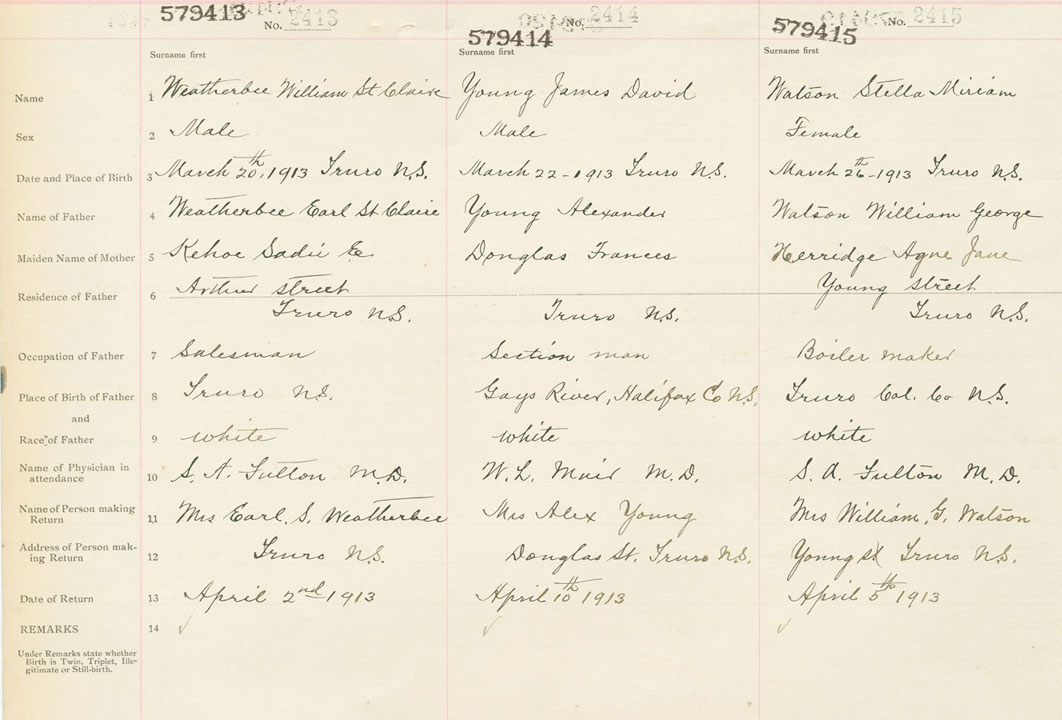 579413 No. 2413 579414 No. 2414 579415 No. 2415
Surname first Surname first Surname first
Name 1 Weatherbee William St Claire Young James David Watson Stella Miriam
Sex 2 Male Male Female
Date and Place of Birth 3 March 20th, 1913 Truro N.S. March 22-1913 Truro N.S. March 26th-1913 Truro N.S.
Name of Father 4 Weatherbee Earl St Claire Young Alexander Watson William George
Maiden Name of Mother 5 Kehoe Sadie E Douglas Frances Herridge Agne Jane
Residence of Father 6 Arthur street Young street
Truro N.S. Truro N.S. Truro N.S.
Occupation of Father 7 Salesman Section man Boiler maker
Place of Birth of Father 8 Truro N.S. Gays River, Halifax Co N.S. Truro Col. Co N.S.
and
Race of Father 9 white white white
Name of Physician in
attendance 10 S. A. Fulton M.D. W. L. Muir M.D. S. A. Fulton M.D.
Name of Person making
Return 11 Mrs Earl. S. Weatherbee Mrs Alex Young Mrs William, G. Watson
Address of Person mak-
ing Return 12 Truro N.S. Douglas St. Truro N.S. Young St Truro N.S.
Date of Return 13 April 2nd 1913 April 10th 1913 April 5th 1913
REMARKS 14
Under Remarks state whether
Birth is Twin, Triplet, Ille-
gitimate or Still-birth.